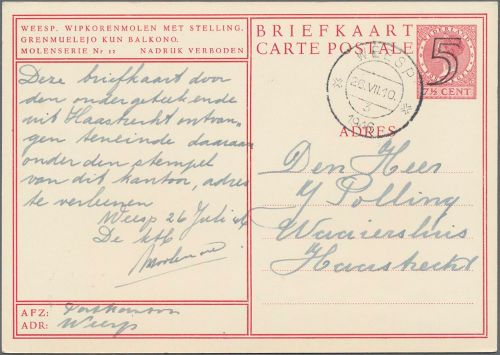 WEESP. WIPKORENMOLEN MET STELLING.
GRENMUELEJO KUN BALKONO.
MOLENSERIE Nr 12 NADRUK VERBODEN
Deze briefkaart door
den ondergeteekende
uit Haastrecht ontvan-
gen teneinde daaraan
onder den stempel
van dit kantoor, adres
te verleenen
Weesp 26 Juli 46
De ktH
AFZ: Postkantoor
ADR: Weesp
BRIEFKAART
CARTE POSTALE
5
7½ CENT
WEESP
26.VII.10.
3
1946
ADRES
Den Heer
Polling
Waaiersluis
Haastrecht